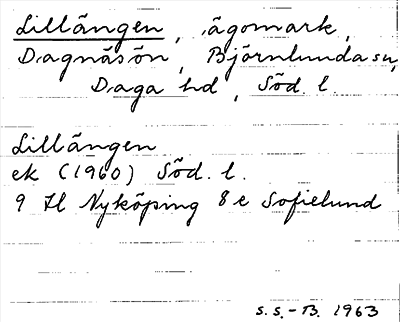 Lillängen, ägomark,
Dagnäsön, Björnlunda sn,
Daga hd, Söd. l.
Lillängen
ek (1960) Söd. l.
9 H Nyköping 8 e Sofielund
S.S.-B. 1963